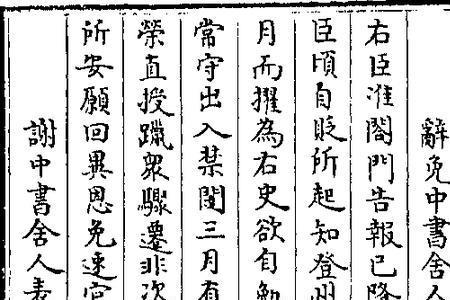 辭免中書舍人
右臣准閤門告報已降
臣頃自貶所起知登州
月而擢為右史欲自勉
常守出入禁闥三月有
榮直授躐衆驟遷非次
所安願回異恩免速官
謝中書舍人表